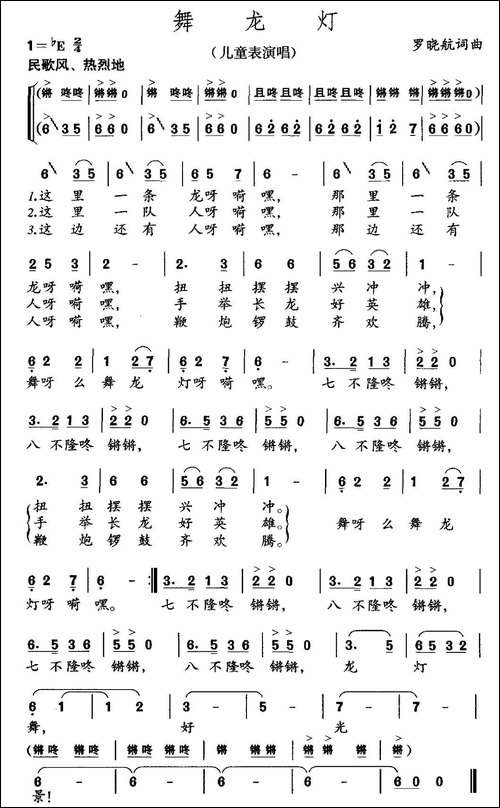 舞龙灯
1=♭E 2/4 （儿童表演唱） 罗晓航词曲
民歌风、热烈地
（锵 咚咚 | 锵锵0 | 锵 咚咚 | 锵锵0 | 且咚且咚 | 且咚且咚 | 锵锵 锵 | 锵锵锵0）
（6 35 | 660 | 6 35 | 660 | 6262 | 6262 | 12 7 | 6660）
6 35 | 6 35 | 65 35 | 6 - | 6 35 | 6 35 |
1.这里一条 龙呀嗬嘿， 那里一条
2.这里一队 人呀嗬嘿， 那里一队
3.这边还有 人呀嗬嘿， 那边还有
25 3 | 2 - | 2. 3 | 6 6 | 56 32 | 1 - |
龙呀嗬嘿， 扭扭摆摆兴冲冲，
人呀嗬嘿， 手举长龙好英雄，
人呀嗬嘿， 鞭炮锣鼓齐欢腾，
62 2 | 1 27 | 62 7 | 6. 0 | 3. 213 | 220 |
舞呀么舞龙 灯呀嗬嘿。 七不隆咚锵锵，
3. 213 | 220 | 6. 536 | 550 | 6. 536 | 550 |
八不隆咚锵锵， 七不隆咚锵锵， 八不隆咚锵锵，
2. 3 | 6 6 | 56 32 | 1 - | 62 2 | 1 27 |
扭扭摆摆兴冲冲。
手举长龙好英雄。 舞呀么舞龙
鞭炮锣鼓齐欢腾。
62 7 | 6 - :‖ 3. 213 | 220 | 3. 213 | 220 |
灯呀嗬嘿。 七不隆咚锵锵， 八不隆咚锵锵，
6. 536 | 550 | 6. 536 | 550 | 3. 5 | 6532 |
七不隆咚锵锵， 八不隆咚锵锵， 龙灯
6 1 | 1 - | 3 - | 5 - | 7 - | 7 - |
舞， 好光
（锵咚 锵咚 | 锵咚 锵咚 | 锵咚 锵咚 | 锵咚 锵咚 | 锵）
6 - | 6 - | 6 - | 6 - | 600 ‖
景！